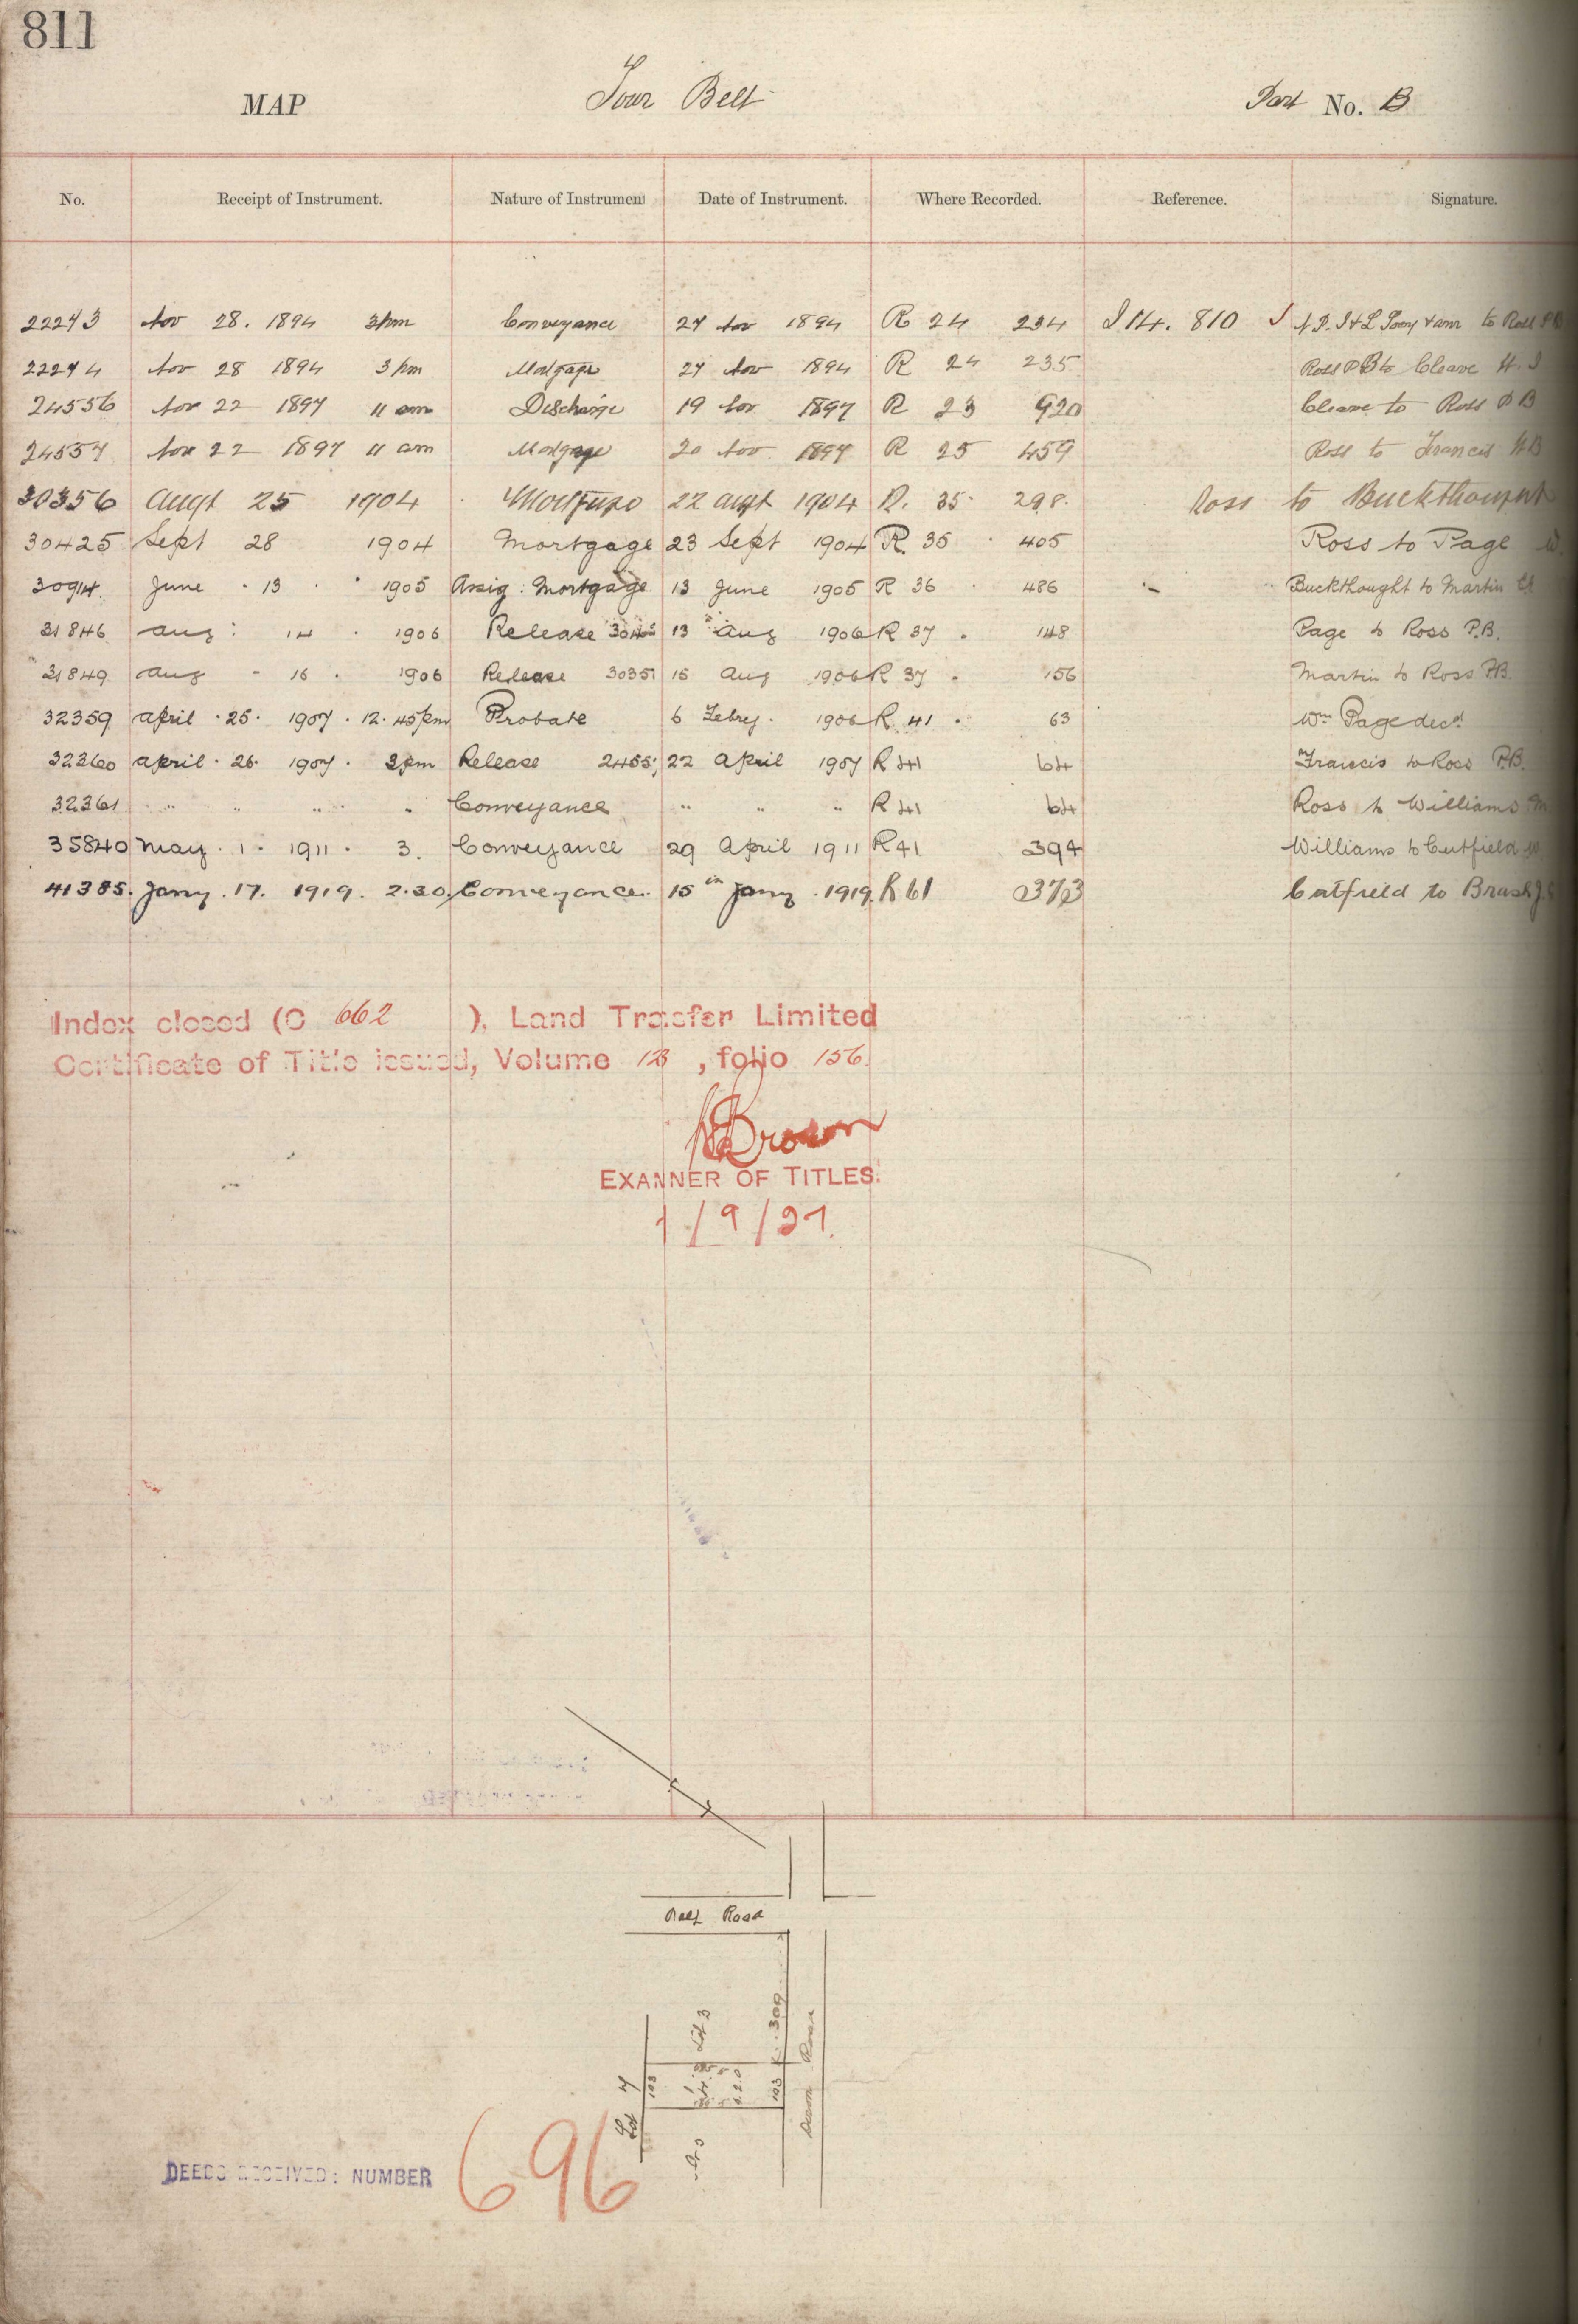 811
MAP Town Belt Part No. B
No. Receipt of Instrument. Nature of Instrument Date of Instrument. Where Recorded. Reference. Signature.
22273 Nov 28. 1894 3 pm Conveyance 27 Nov 1894 R 24 234 I 14. 810 to Ross P B
22274 Nov 28 1894 3 pm Mortgage 27 Nov 1894 R 24 235 Ross P B to Cleave H. J
24556 Nov 22 1897 11 am Discharge 19 Nov 1897 R 23 920 Cleave to Ross P B
24557 Nov 22 1897 11 am Mortgage 20 Nov 1897 R 25 459 Ross to Francis
30356 Augt 25 1904 Mortgage 22 Augt 1904 R. 35 298. Ross to Buckthought
30425 Sept 28 1904 Mortgage 23 Sept 1904 R 35 405 Ross to Page W.
30914. June 13 1905 Assig: Mortgage 13 June 1905 R 36 486 Buckthought to Martin
31846 Aug: 14 1906 Release 30425 13 Aug 1906 R 37 148 Page to Ross P.B.
31849 Aug 16 1906 Release 30357 15 Aug 1906 R 37 156 Martin to Ross P.B.
32359 April 25. 1907. 12.45 pm Probate 6 Febry. 1906 R 41 63 Wm Page decd
32360 April 26. 1907. 3 pm Release 2455 22 April 1907 R 41 64 Francis to Ross P.B.
32361 " " " " Conveyance " " " R 41 64 Ross to Williams
35840 May 1 1911. 3. Conveyance 29 April 1911 R 41 394 Williams to Cutfield
41385. Jany. 17. 1919. 2.30. Conveyance. 15th Jany. 1919. R 61 373 Cutfield to Brash J.
Index closed (C 662 ), Land Trasfer Limited
Certificate of Title issued, Volume 128, folio 156.
Brown
EXANNER OF TITLES.
1/9/27.
Belt Road
Lot 3
309
Lot 7
103
103
Road
DEEDS RECEIVED: NUMBER 696